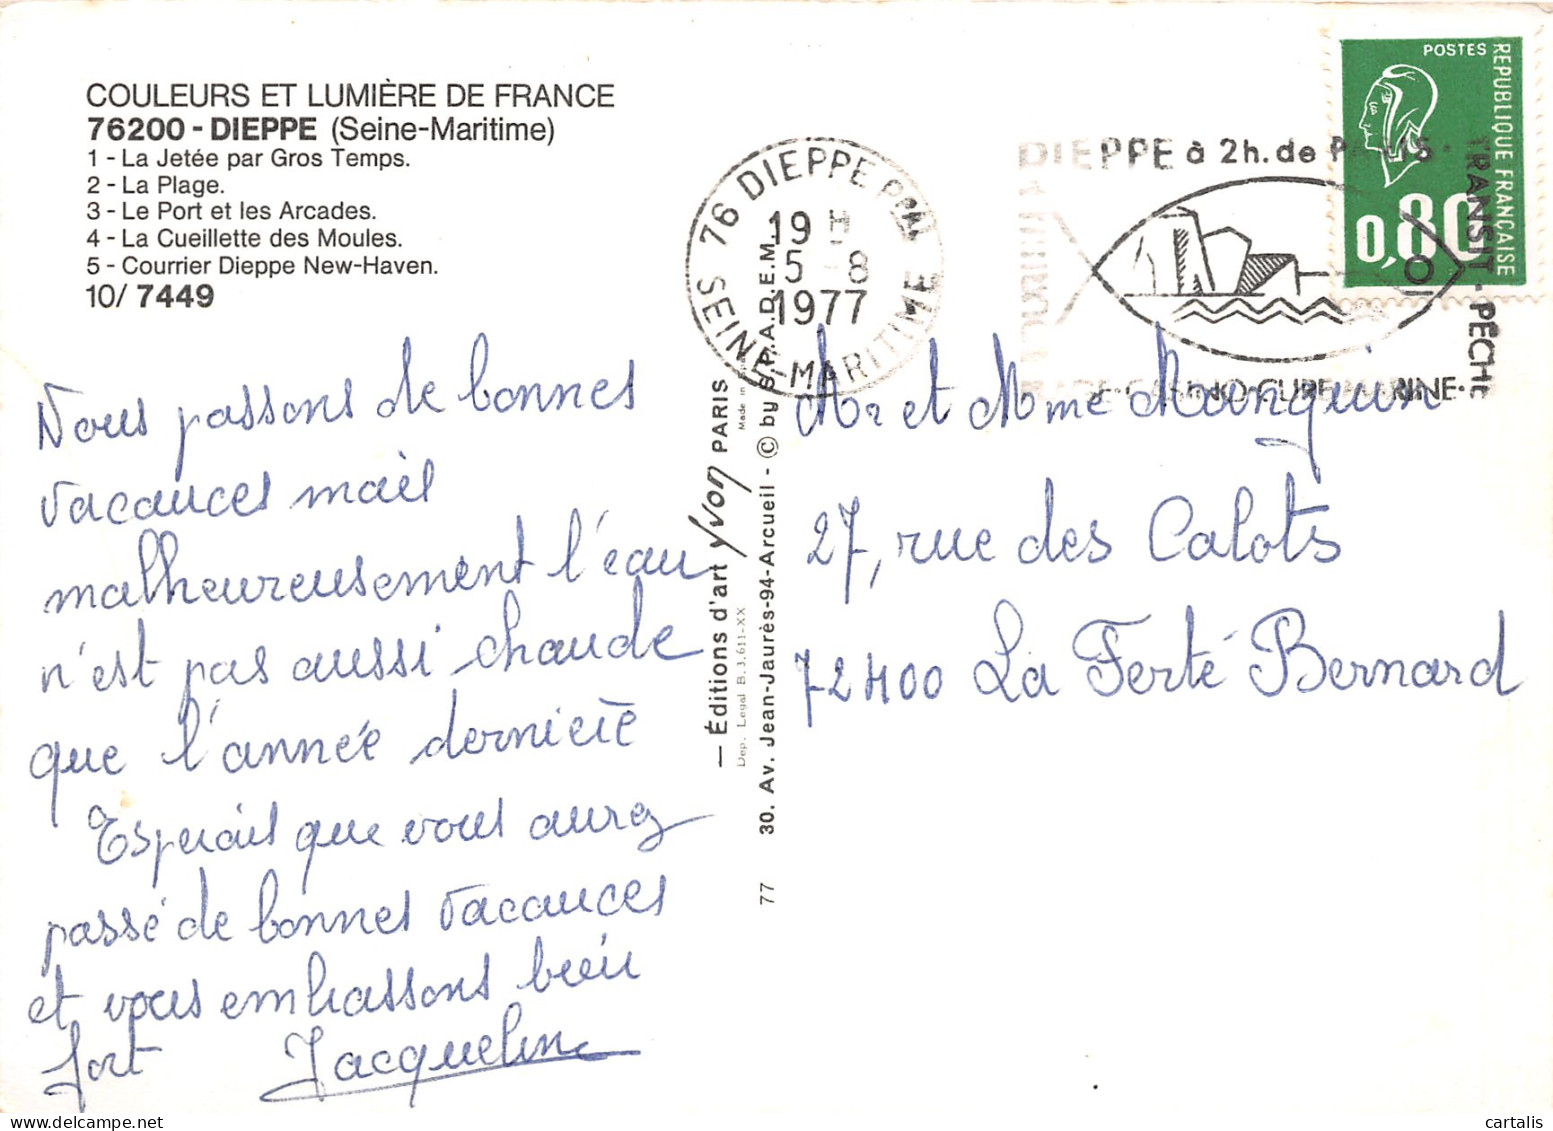 COULEURS ET LUMIÈRE DE FRANCE
76200 - DIEPPE (Seine-Maritime)
1 - La Jetée par Gros Temps.
2 - La Plage.
3 - Le Port et les Arcades.
4 - La Cueillette des Moules.
5 - Courrier Dieppe New-Haven.
10/ 7449
Nous passons de bonnes
vacances mais
malheureusement l'eau
n'est pas aussi chaude
que l'année dernière
Espérais que vous aurez
passé de bonnes vacances
et vous embrassons bien
fort Jacqueline
— Éditions d'art Yvon PARIS
Made in
Dep. Legal B.3.611-XX
30. Av. Jean-Jaurès-94-Arcueil - © by S.P.A.D.E.M.
77
76 DIEPPE PPAL
19 H
5 - 8
1977
SEINE-MARITIME
DIEPPE à 2h. de PARIS
TRANSIT - PÊCHE
POSTES
REPUBLIQUE FRANÇAISE
0,80
Mr et Mme Manguin
27, rue des Calots
72400 La Ferté Bernard
cartalis